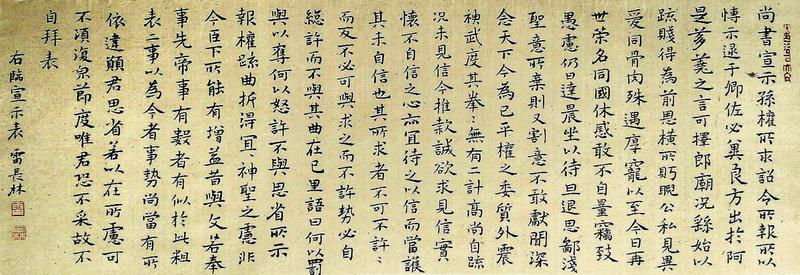 尚書宣示孫權所求詔令所報所以
博示逮于卿佐必冀良方出於阿
是芻蕘之言可擇郎廟況繇始以
疏賤得為前恩橫所眄睨公私見異
愛同骨肉殊遇厚寵以至今日再
世榮名同國休慼敢不自量竊致
愚慮仍日達晨坐以待旦退思鄙淺
聖意所棄則又割意不敢獻聞深
念天下今為已平權之委質外震
神武度其拳々無有二計高尚自疏
況未見信今推款誠欲求見信實
懷不自信之心亦宜待之以信而當護
其未自信也其所求者不可不許々
而反不必可與求之而不許勢必自
絕許而不與其曲在己里語曰何以罰
與以奪何以怒許不與思省所示
報權疏曲折得宜神聖之慮非
今臣下所能有增益昔與文若奉
事先帝事有數者有似於此粗
表二事以為今者事勢尚當有所
依違願君思省若以在所慮可
不須復貌節度唯君恐不采故不
自拜表
右臨宣示表 雷長林